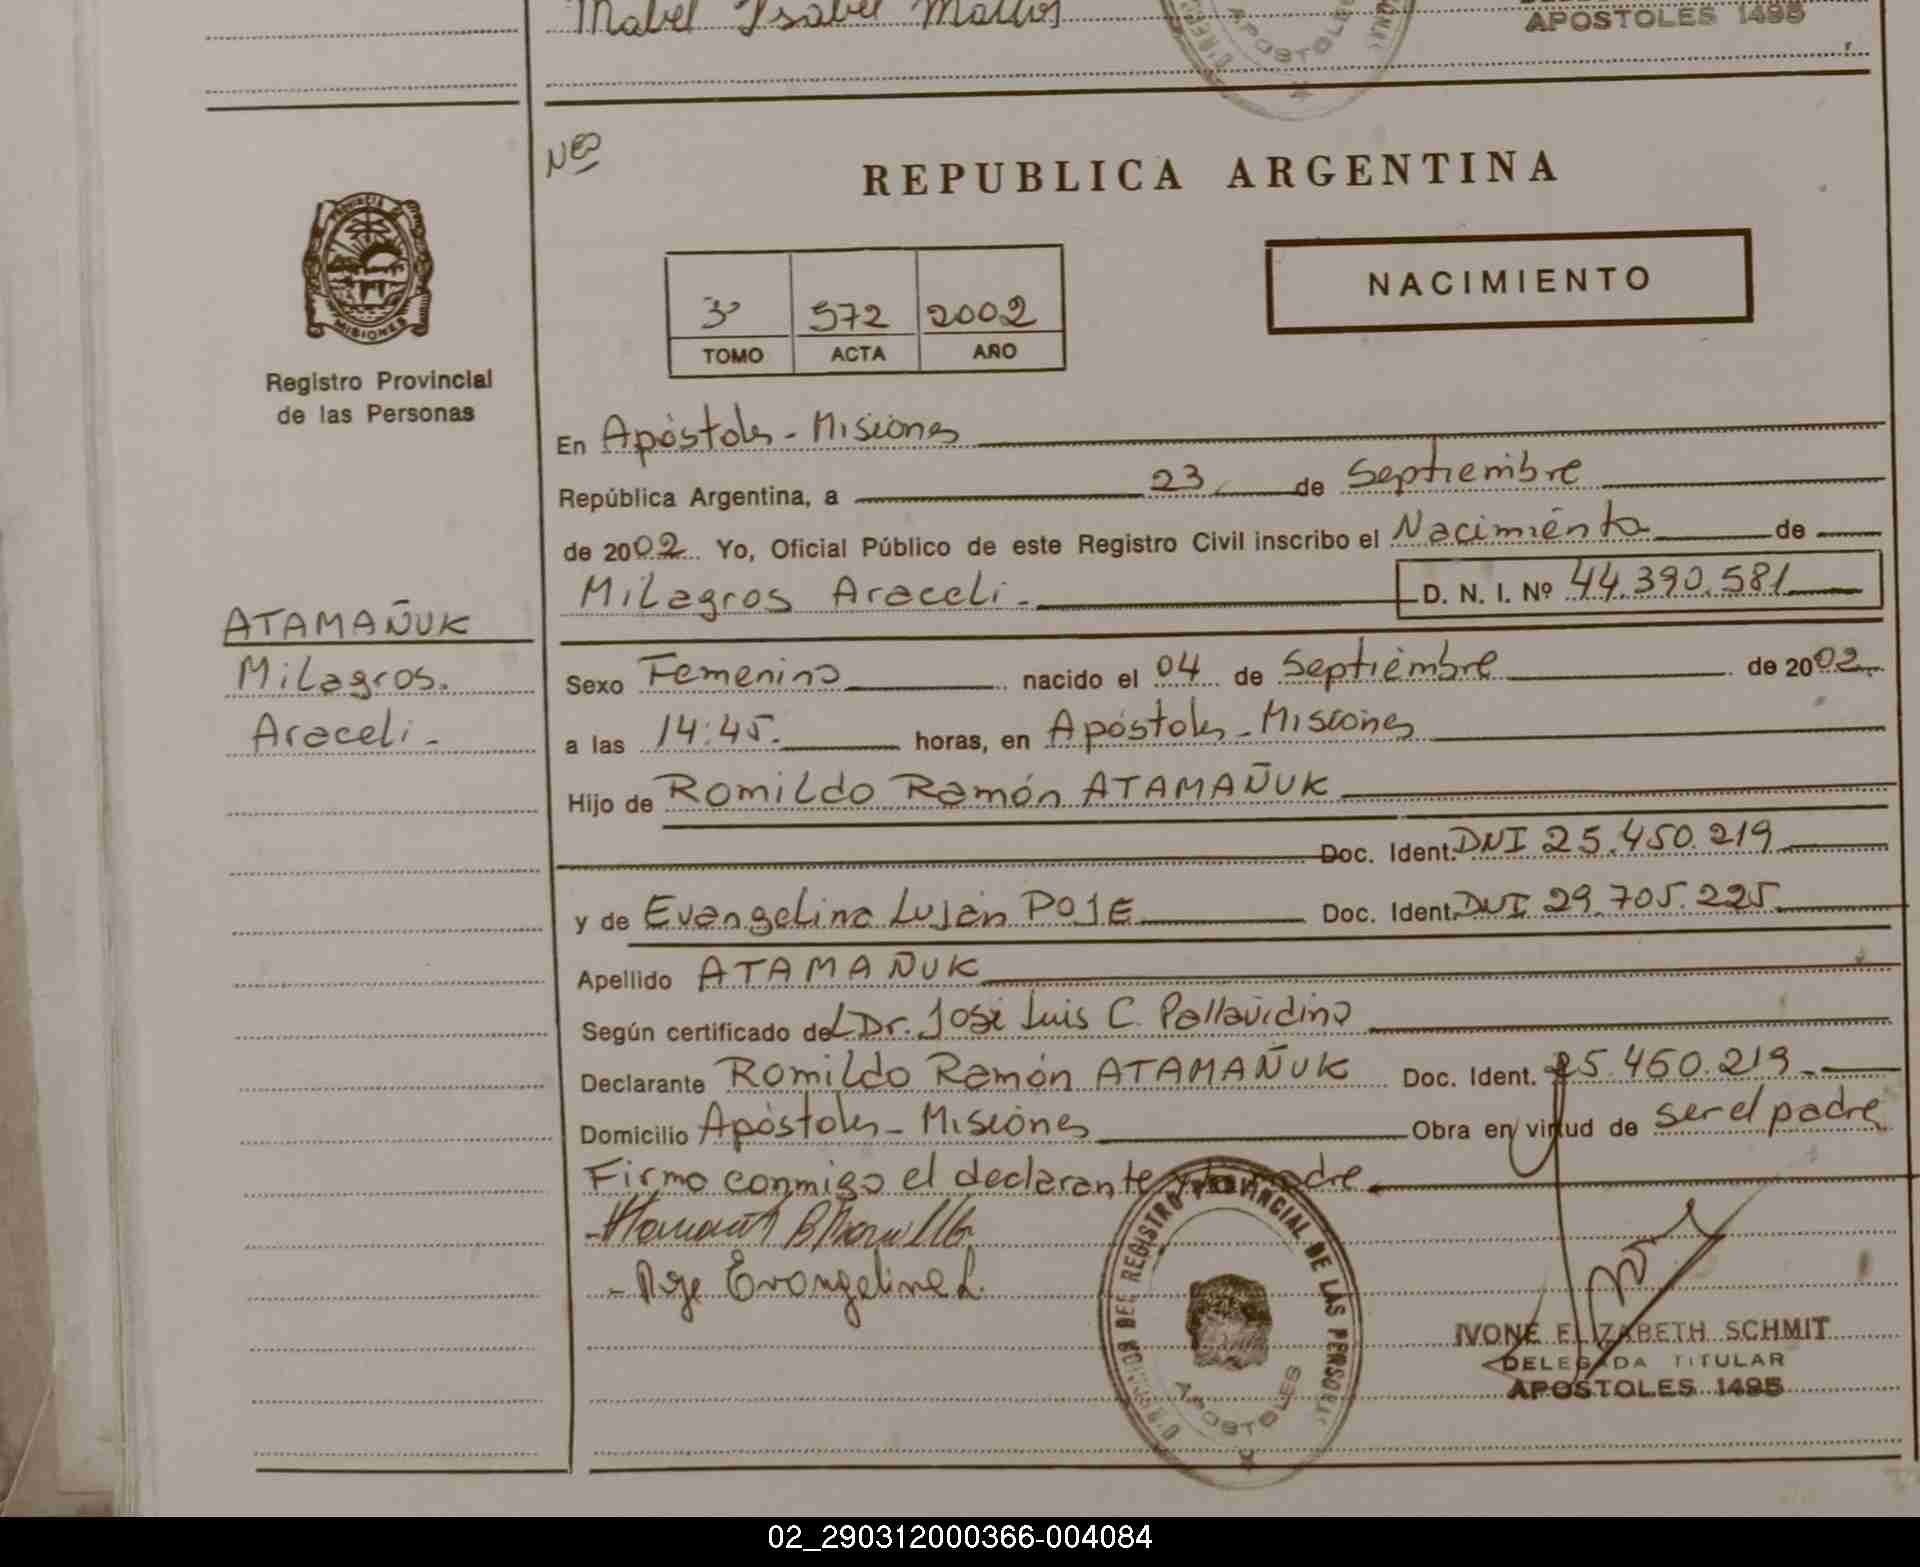 Mabel Isabel Mattos
APOSTOLES
APOSTOLES 1495
NEO
REPUBLICA ARGENTINA
PROVINCIA DE
MISIONES
Registro Provincial
de las Personas
3º 572 2002
TOMO ACTA AÑO
NACIMIENTO
En Apóstoles - Misiones
República Argentina, a 23 de Septiembre
de 2002 Yo, Oficial Público de este Registro Civil inscribo el Nacimiento de
Milagros Araceli - D. N. I. Nº 44.390.581
ATAMAÑUK
Milagros.
Araceli -
Sexo Femenino nacido el 04 de Septiembre de 2002
a las 14:45. horas, en Apóstoles - Misiones
Hijo de Romildo Ramón ATAMAÑUK
Doc. Ident. DNI 25.450.219
y de Evangelina Luján POJE Doc. Ident. DNI 29.705.225
Apellido ATAMAÑUK
Según certificado del Dr. José Luis C. Pallavidino
Declarante Romildo Ramón ATAMAÑUK Doc. Ident. 25.450.219
Domicilio Apóstoles - Misiones Obra en virtud de ser el padre
Firmo conmigo el declarante y la madre
- Poje Evangelina L.
DIRECCION DEL REGISTRO PROVINCIAL DE LAS PERSONAS
APOSTOLES
IVONE ELIZABETH SCHMIT
DELEGADA TITULAR
APOSTOLES 1495
02_290312000366-004084